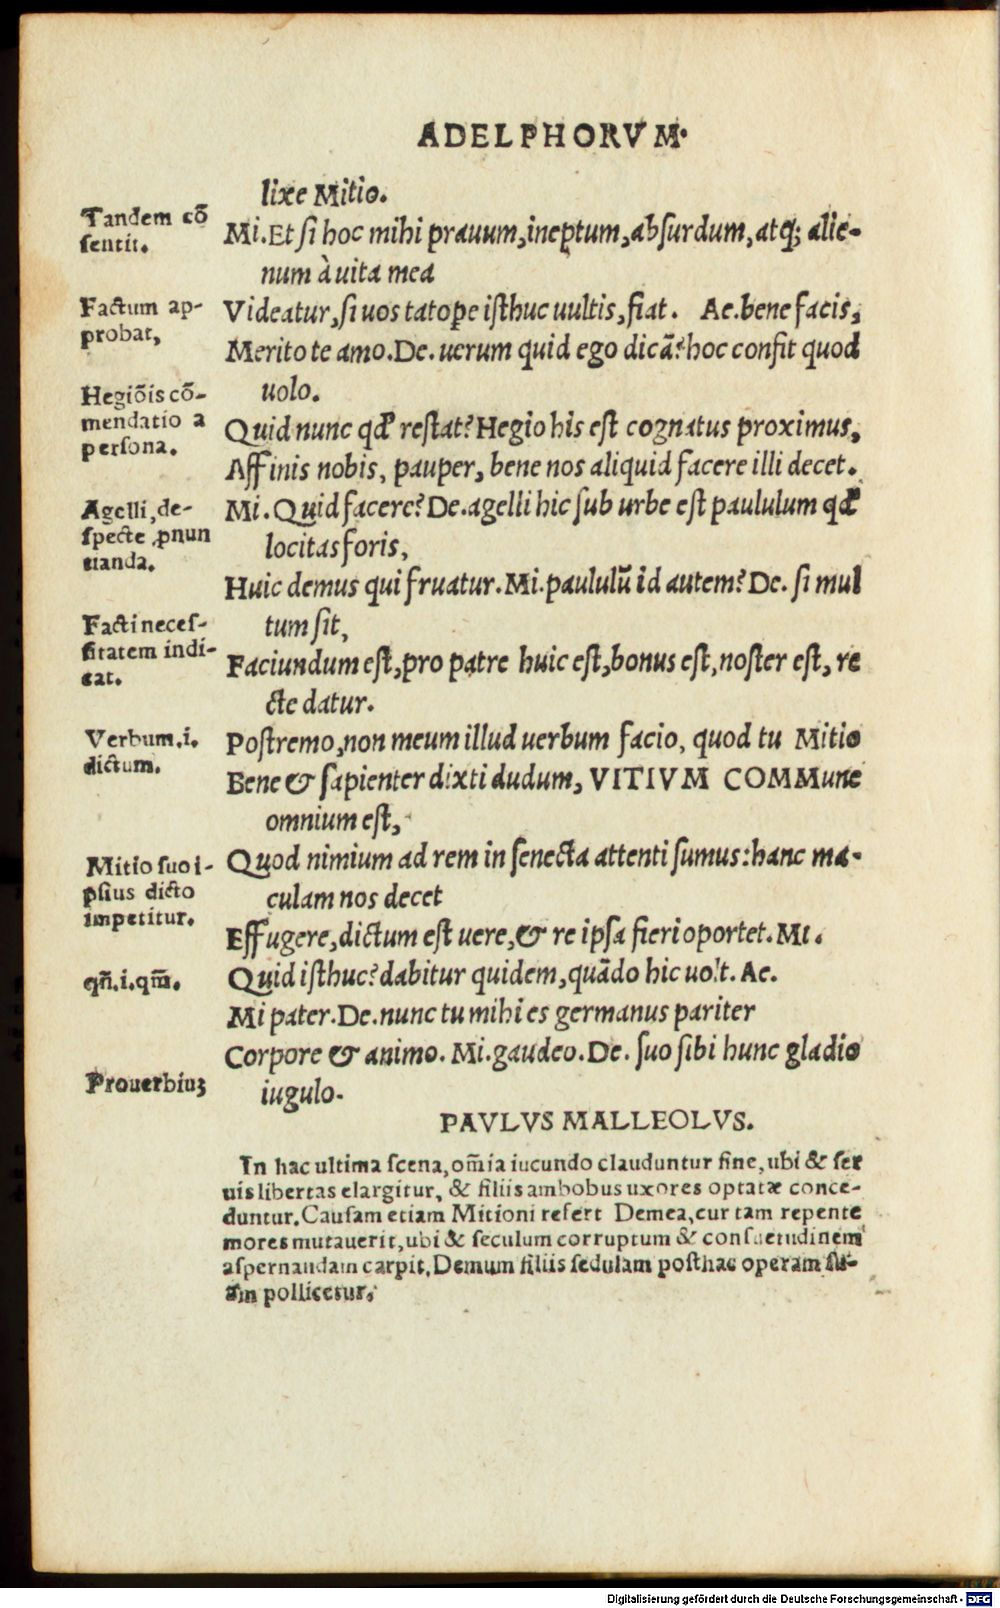 ADELPHORVM·
lixe Mitio.
Tandem cõ
sentit.
Mi. Et si hoc mihi prauum, ineptum, absurdum, atq; alie-
num à uita mea
Factum ap-
probat,
Videatur, si uos tatope isthuc uultis, fiat. Ae. bene facis,
Merito te amo. De. uerum quid ego dicã? hoc confit quod
uolo.
Hegiõis cõ-
mendatio a
persona.
Quid nunc qd restat? Hegio his est cognatus proximus,
Affinis nobis, pauper, bene nos aliquid facere illi decet.
Agelli, de-
specte pnun
tianda.
Mi. Quid facere? De. agelli hic sub urbe est paululum qd
locitas foris,
Huic demus qui fruatur. Mi. paululũ id autem? De. si mul
tum sit,
Facti neces-
sitatem indi-
cat.
Faciundum est, pro patre huic est, bonus est, noster est, re
cte datur.
Verbum .i.
dictum.
Postremo, non meum illud uerbum facio, quod tu Mitio
Bene & sapienter dixti dudum, VITIVM COMMune
omnium est,
Mitio suo i-
psius dicto
impetitur.
Quod nimium ad rem in senecta attenti sumus: hanc ma-
culam nos decet
Effugere, dictum est uere, & re ipsa fieri oportet. Mi.
qñ.i.qm̃.
Quid isthuc? dabitur quidem, quãdo hic uolt. Ae.
Mi pater. De. nunc tu mihi es germanus pariter
Corpore & animo. Mi. gaudeo. De. suo sibi hunc gladio
iugulo.
Prouerbiuꝫ
PAVLVS MALLEOLVS.
In hac ultima scena, om̃ia iucundo clauduntur fine, ubi & ser
uis libertas elargitur, & filiis ambobus uxores optatæ conce-
duntur. Causam etiam Mitioni refert Demea, cur tam repente
mores mutauerit, ubi & seculum corruptum & consuetudinem
aspernandam carpit. Demum filiis sedulam posthac operam su-
am pollicetur.
Digitalisierung gefördert durch die Deutsche Forschungsgemeinschaft - DFG